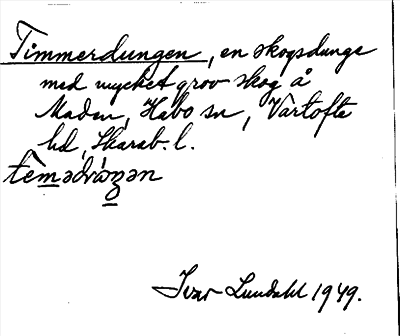 Timmerdungen, en skogsdunge
med mycket grov skog å
Maden, Habo sn, Vartofte
hd, Skarab. l.
Ivar Lundahl 1949.